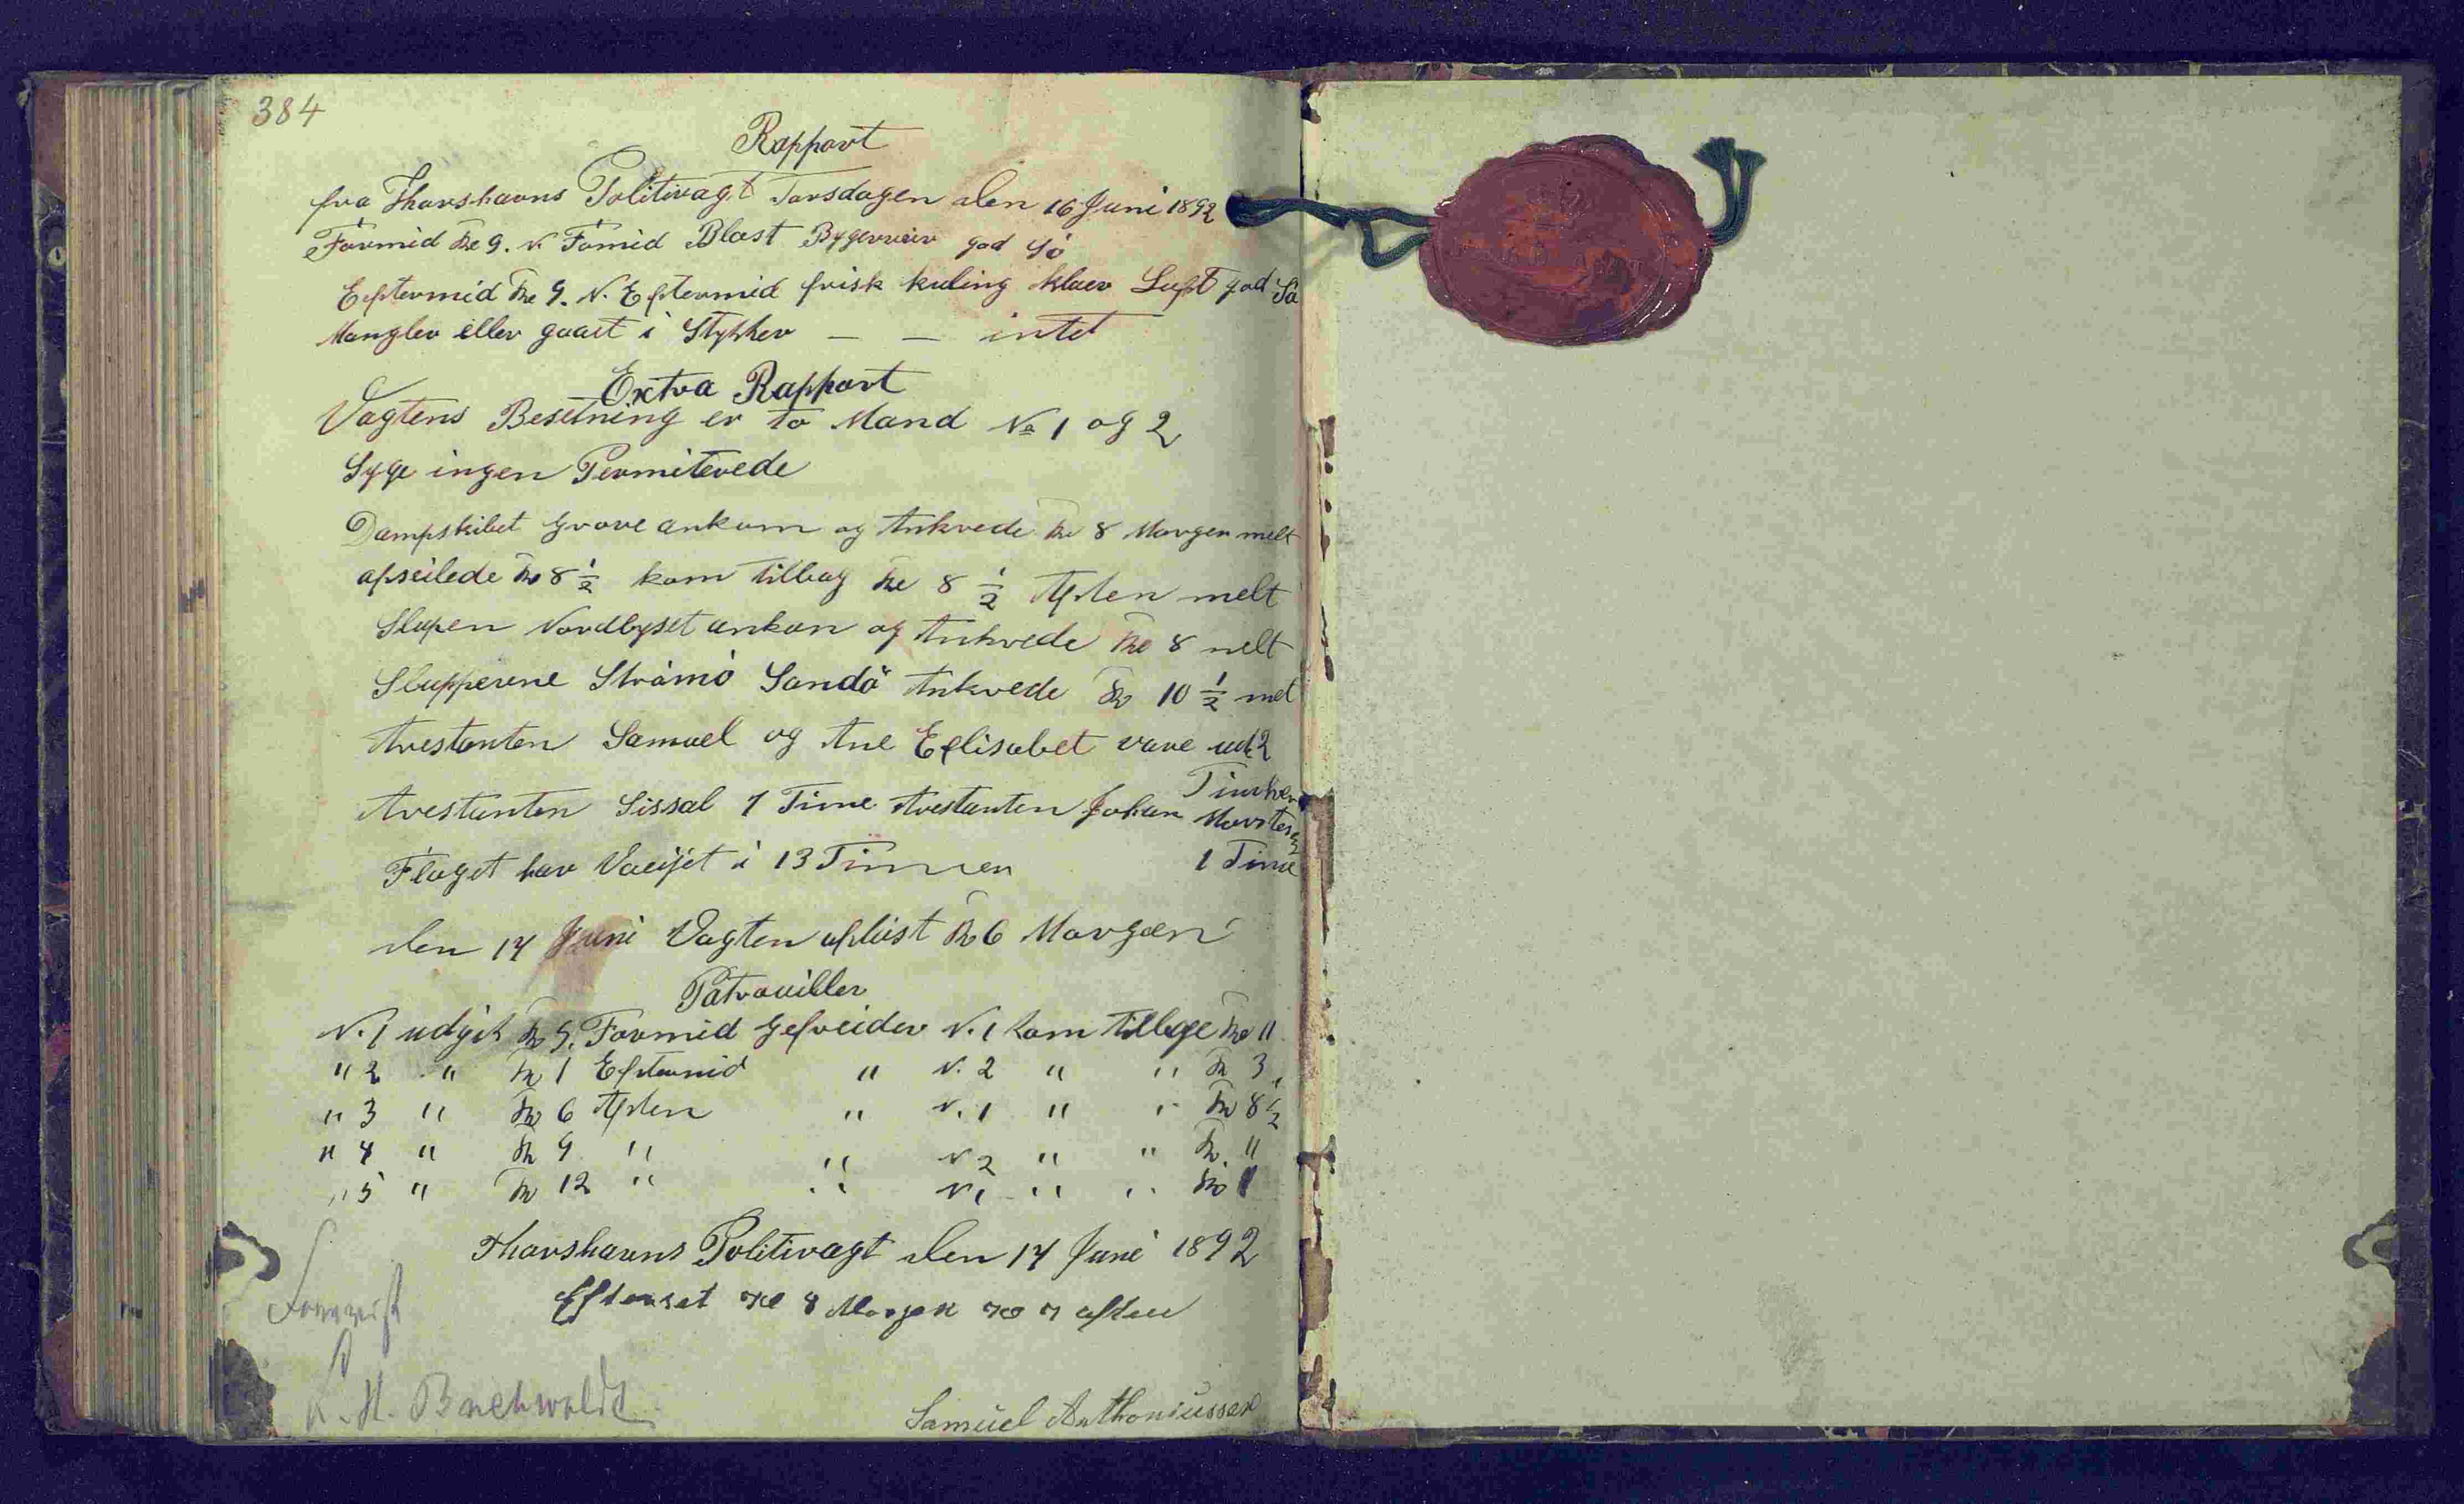 384
Rapport
fra Thorshavns Politivagt Torsdagen den 16 Juni 1892
Formid Kl 9. N. Fomid Blæst Bygerveir god Sö
Eftermid Kl 9. N. Eftermid frisk kuling klaer Luft god Sö
Mangler eller gaaet i Stykker — — intet
Extra Rapport
Vagtens Besetning er to Mand No 1 og 2
Syge ingen Permiterede
Dampskibet Grove ankom og Ankrede Kl 8 Morgen melt
afseilede Kl 8 1/2 kom tilbag Kl 8 1/2 Aften melt
Slupen Nordlyset ankom og Ankrede Kl 8 melt
Slupperene Strömö Sandö Ankrede Kl 10 1/2 melt
Arestanten Samuel og Ane Eelisabet vare ude 2
Timer
Arestanten Sissal 1 Time Arestanten Johan Morten
1 Time
Flaget har Vaeijet i 13 Timmer
den 17 Juni Vagten aflöst Kl 6 Morgen
Patrouiller
N. 1 udgik Kl 9. Formid Gefreider N. 1 kom tilbage Kl 11
" 2 " Kl 1 Eftermid " N. 2 " " Kl 3
" 3 " Kl 6 Aften " N. 1 " " Kl 8 1/2
" 4 " Kl 9 " " N 2 " " Kl 11
" 5 " Kl 12 " " N 1 " " Kl 1
Thorshavns Politivagt den 17 Juni 1892
Efterset Kl 8 Morgen Kl 7 aften
L. H. Buchwaldt
Samuel Anthoniussen